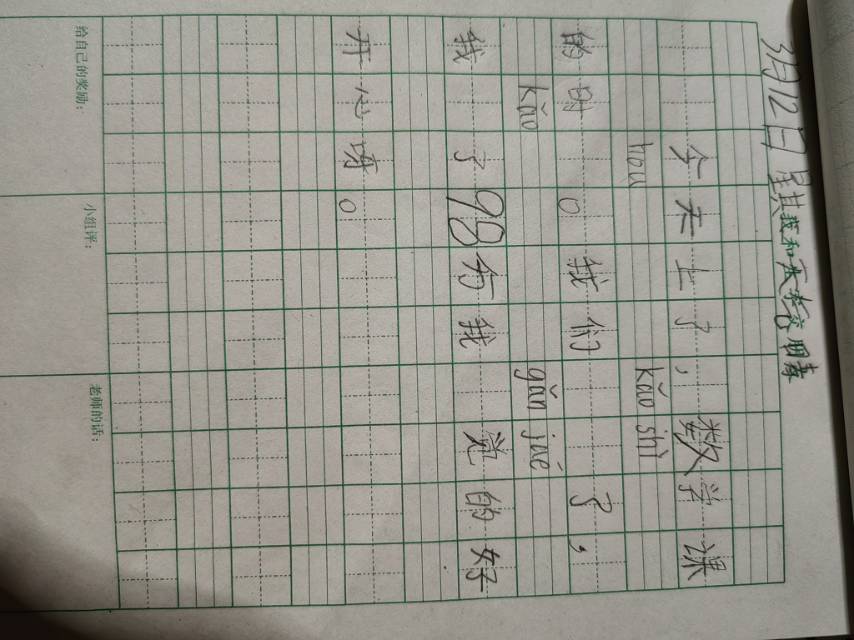 3月12日 星其
今天上了,数学课
hou kǎo shì
的时 。我们 了,
kǎo gǎn jué
我 了98分我 觉的好
开心呀。
给自己的奖励: 小组评: 老师的话: